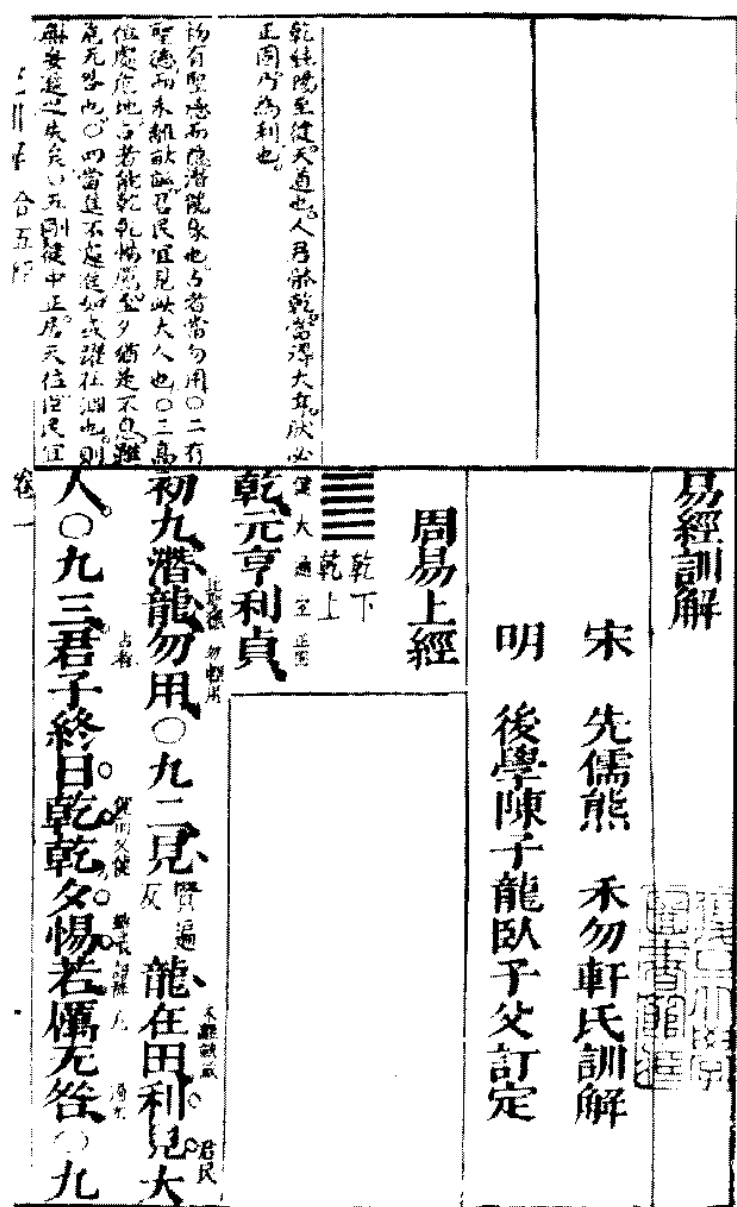 易經訓解
宋 先儒熊 禾勿軒氏訓解
明 後學陳子龍臥子父訂定
周易上經
乾下
乾上
乾元亨利貞
健 大 通 宜 正固
初九潛龍勿用〇九二見賢遍反龍在田利見大
人〇九三君子終日乾乾夕惕若厲无咎〇九
乾純陽至健天道也人君體乾當得大亨然必
正固乃為利也
初有聖德而隱潛龍象也占者當勿用〇二有
聖德而未離畎畝君民宜見此大人也〇三高
位處危地占者能乾乾惕厲至夕猶是不息雖
危无咎也〇四當進不遽進如或躍在淵也則
無妄進之失矣〇五剛健中正居天位臣民宜
卷一